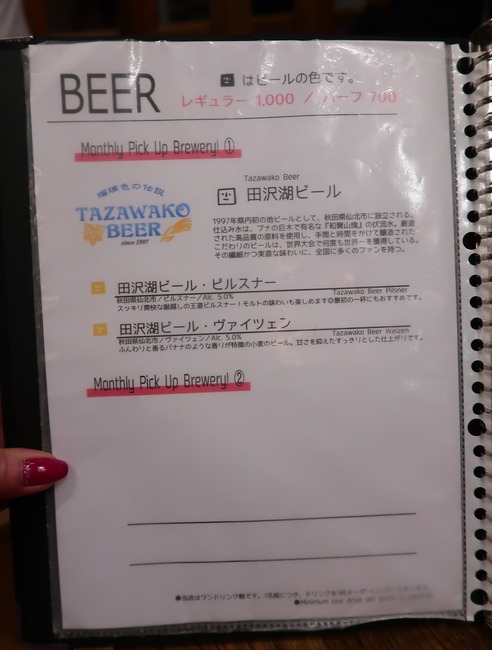 BEER
はビールの色です。
レギュラー 1,000 / ハーフ 700
Monthly Pick Up Brewery! ①
瑠璃色の伝説
TAZAWAKO
BEER
since 1997
Tazawako Beer
田沢湖ビール
1997年県内初の地ビールとして、秋田県仙北市に設立される。
仕込み水は、ブナの巨木で有名な『和賀山塊』の伏流水。厳選
された高品質の原料を使用し、手間と時間をかけて醸造された
こだわりのビールは、世界大会で何度も世界一を獲得している。
その繊細かつ実直な味わいに、全国に多くのファンを持つ。
田沢湖ビール・ピルスナー
Tazawako Beer Pilsner
秋田県仙北市／ピルスナー／Alc. 5.0%
スッキリ爽快な喉越しの王道ピルスナー！モルトの味わいも楽しめます◎最初の一杯にもおすすめです。
田沢湖ビール・ヴァイツェン
Tazawako Beer Weizen
秋田県仙北市／ヴァイツェン／Alc. 5.0%
ふんわりと香るバナナのような香りが特徴の小麦のビール。甘さを抑えたすっきりとした仕上がりです。
Monthly Pick Up Brewery! ②
●当店はワンドリンク制です。1名様につき、ドリンクを1杯オーダー
●Minimum one drink per